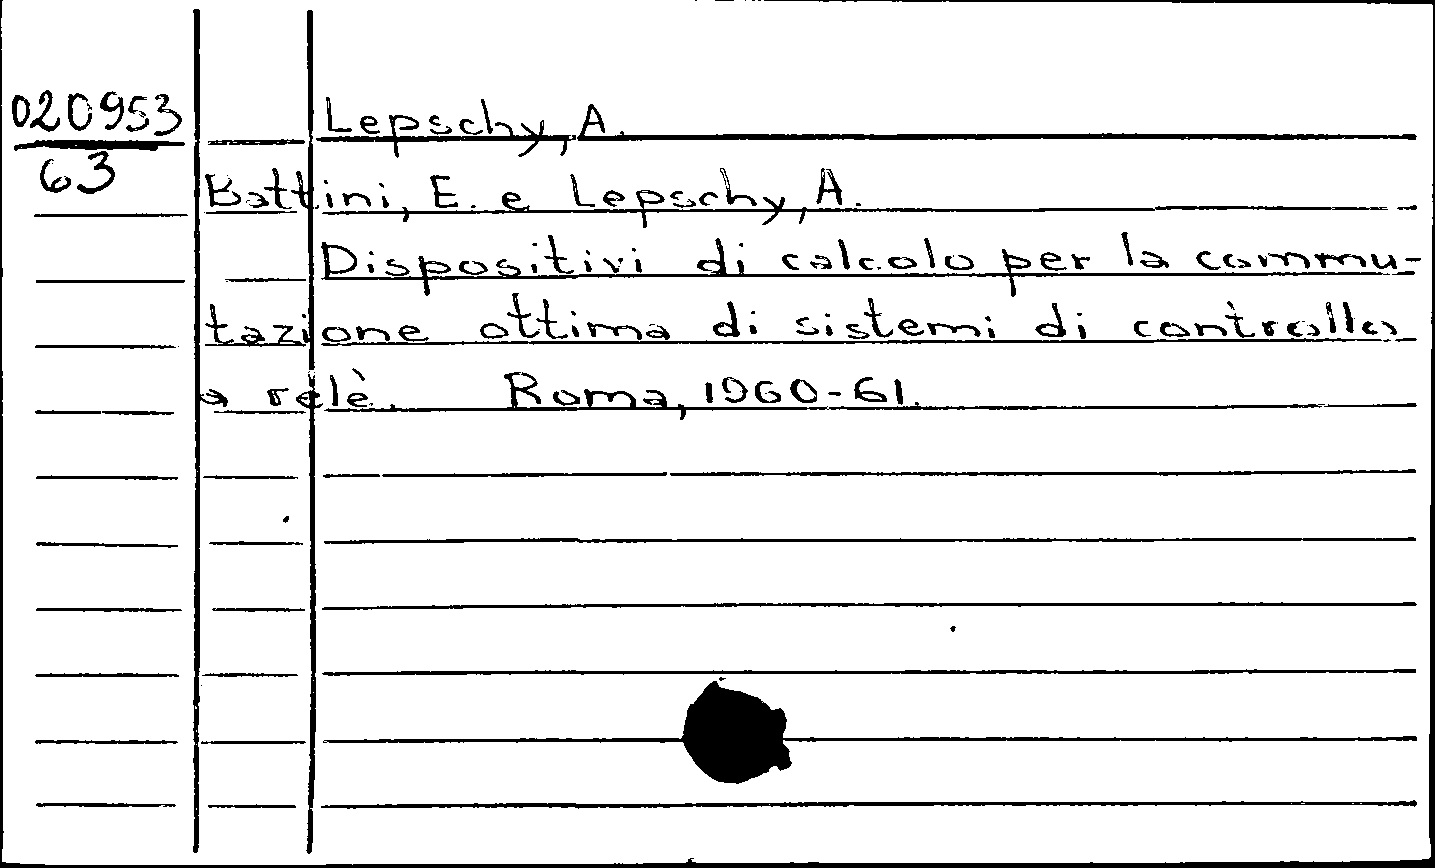 020953
63
Lepschy, A.
Battini, E. e Lepschy, A.
Dispositivi di calcolo per la commu-
tazione ottima di sistemi di controllo
a relè. Roma, 1960-61.